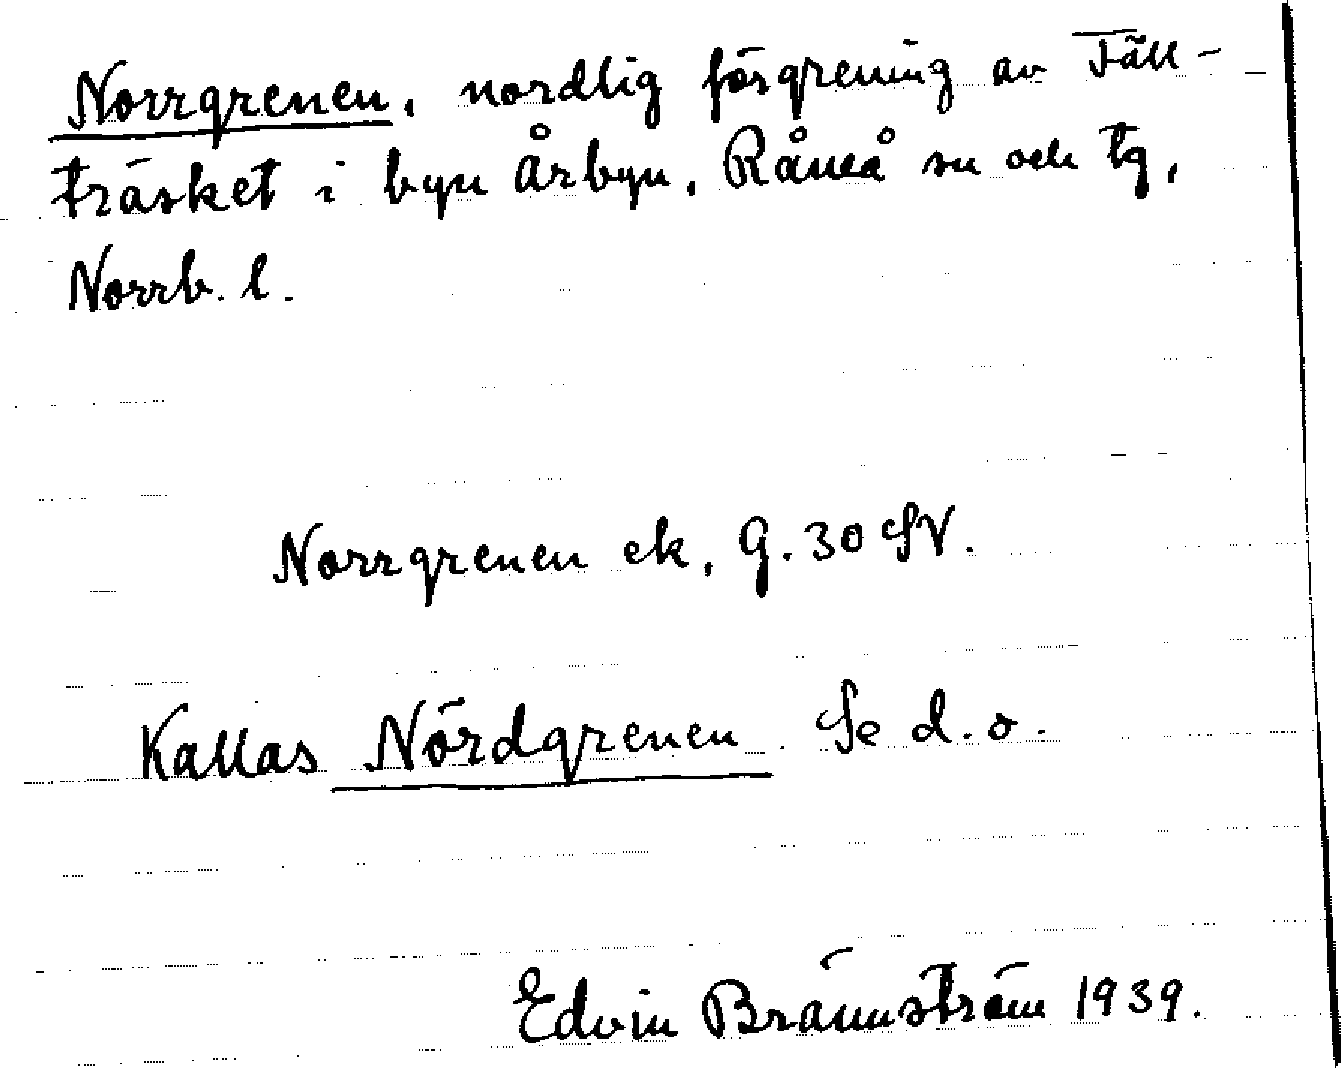 Norrgrenen, nordlig förgrening av Täll-
träsket i byn Årbyn, Råneå sn och tg,
Norrb. l.
Norrgrenen ek, G. 30 SV.
Kallas Nördgrenen Se d. o.
Edvin Brännström 1939.